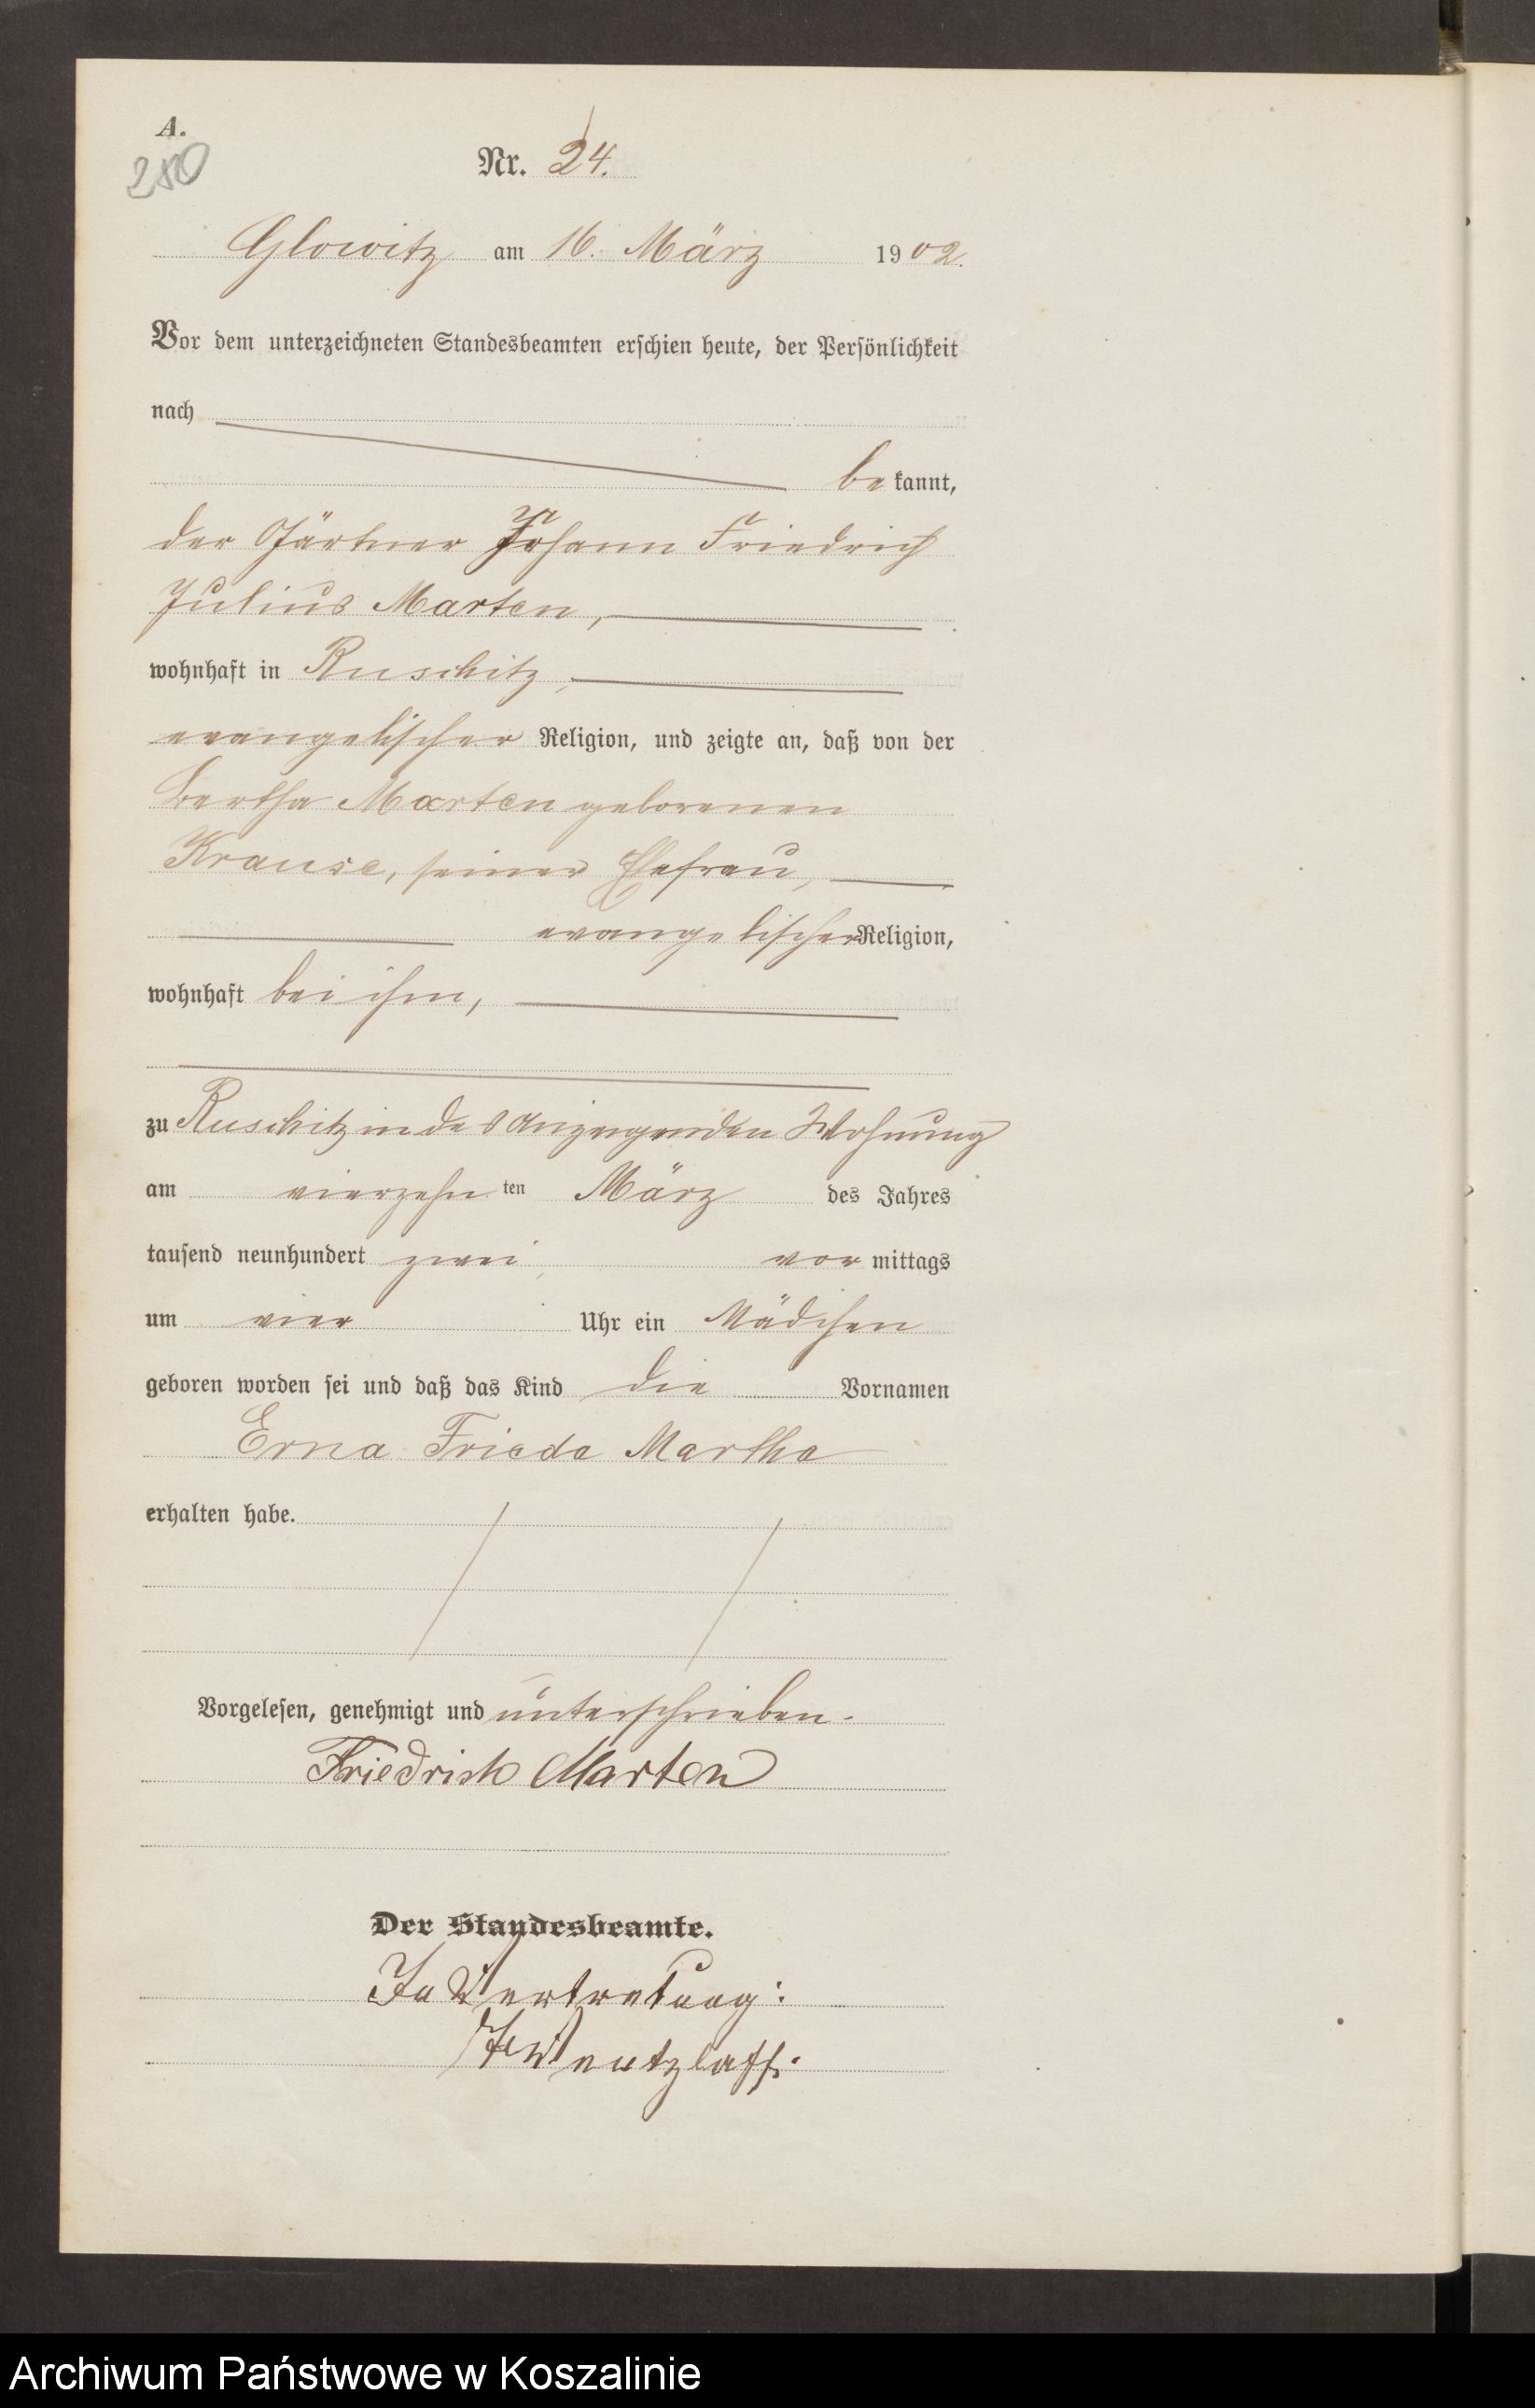 A.
280
Nr. 24.
Glowitz am 16. März 1902.
Vor dem unterzeichneten Standesbeamten erschien heute, der Persönlichkeit
nach
bekannt,
der Gärtner Johann Friedrich
Julius Marten,
wohnhaft in Ruschitz,
evangelischer Religion, und zeigte an, daß von der
Bertha Marten geborenen
Krause, seiner Ehefrau,
evangelischer Religion,
wohnhaft bei ihm,
zu Ruschitz in des Anzeigenden Wohnung
am vierzehnten März des Jahres
tausend neunhundert zwei, vormittags
um vier Uhr ein Mädchen
geboren worden sei und daß das Kind die Vornamen
Erna Frieda Martha
erhalten habe.
Vorgelesen, genehmigt und unterschrieben.
Friedrich Marten
Der Standesbeamte.
In Vertretung:
Wentzlaff.
Archiwum Państwowe w Koszalinie